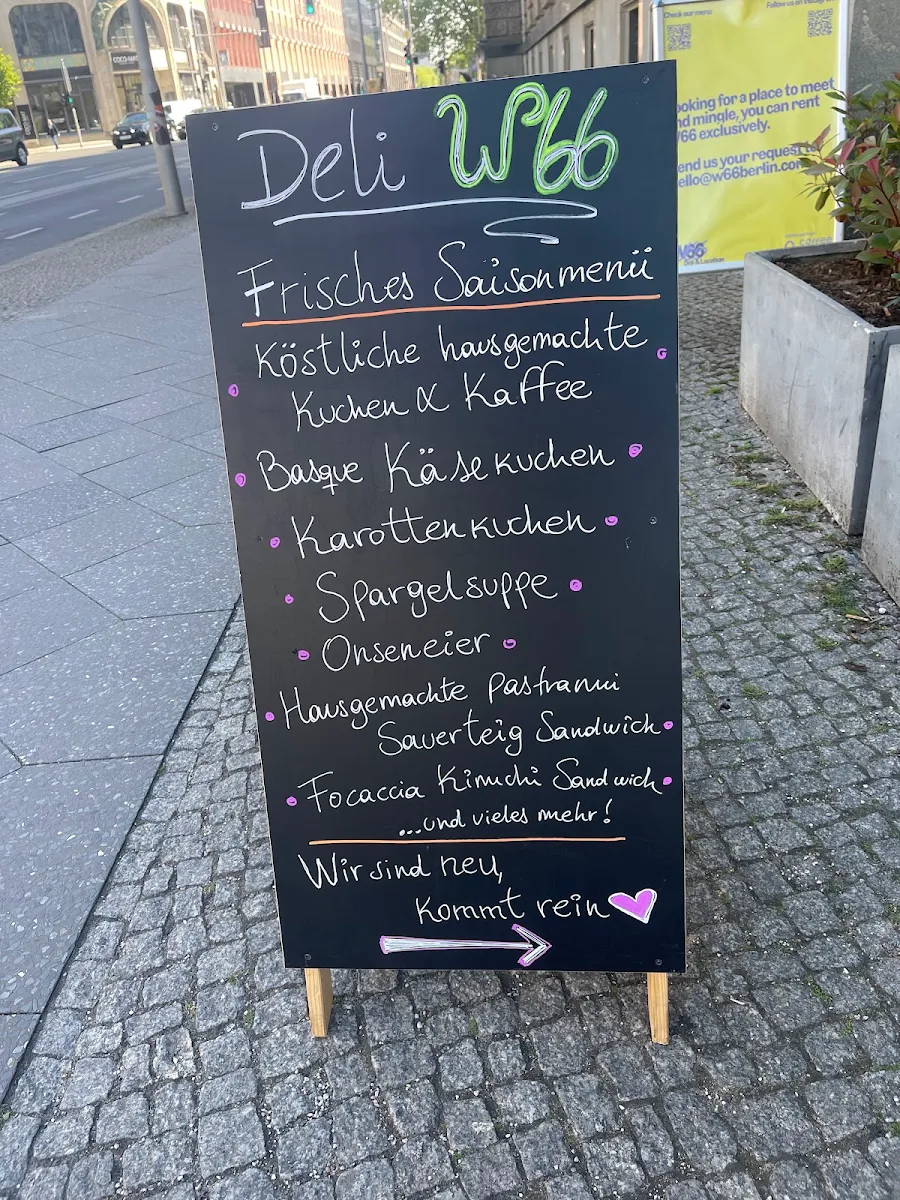 Deli W66
Frisches Saisonmenü
Köstliche hausgemachte
Kuchen & Kaffee
Basque Käsekuchen
Karottenkuchen
Spargelsuppe
Onseneier
Hausgemachte Pastrami
Sauerteig Sandwich
Focaccia Kimchi Sandwich
...und vieles mehr!
Wir sind neu,
kommt rein
Check our menu
Follow us on
ooking for a place to meet
nd mingle, you can rent
W66 exclusively.
end us your request
ello@w66berlin.com
W66
Deli & Location